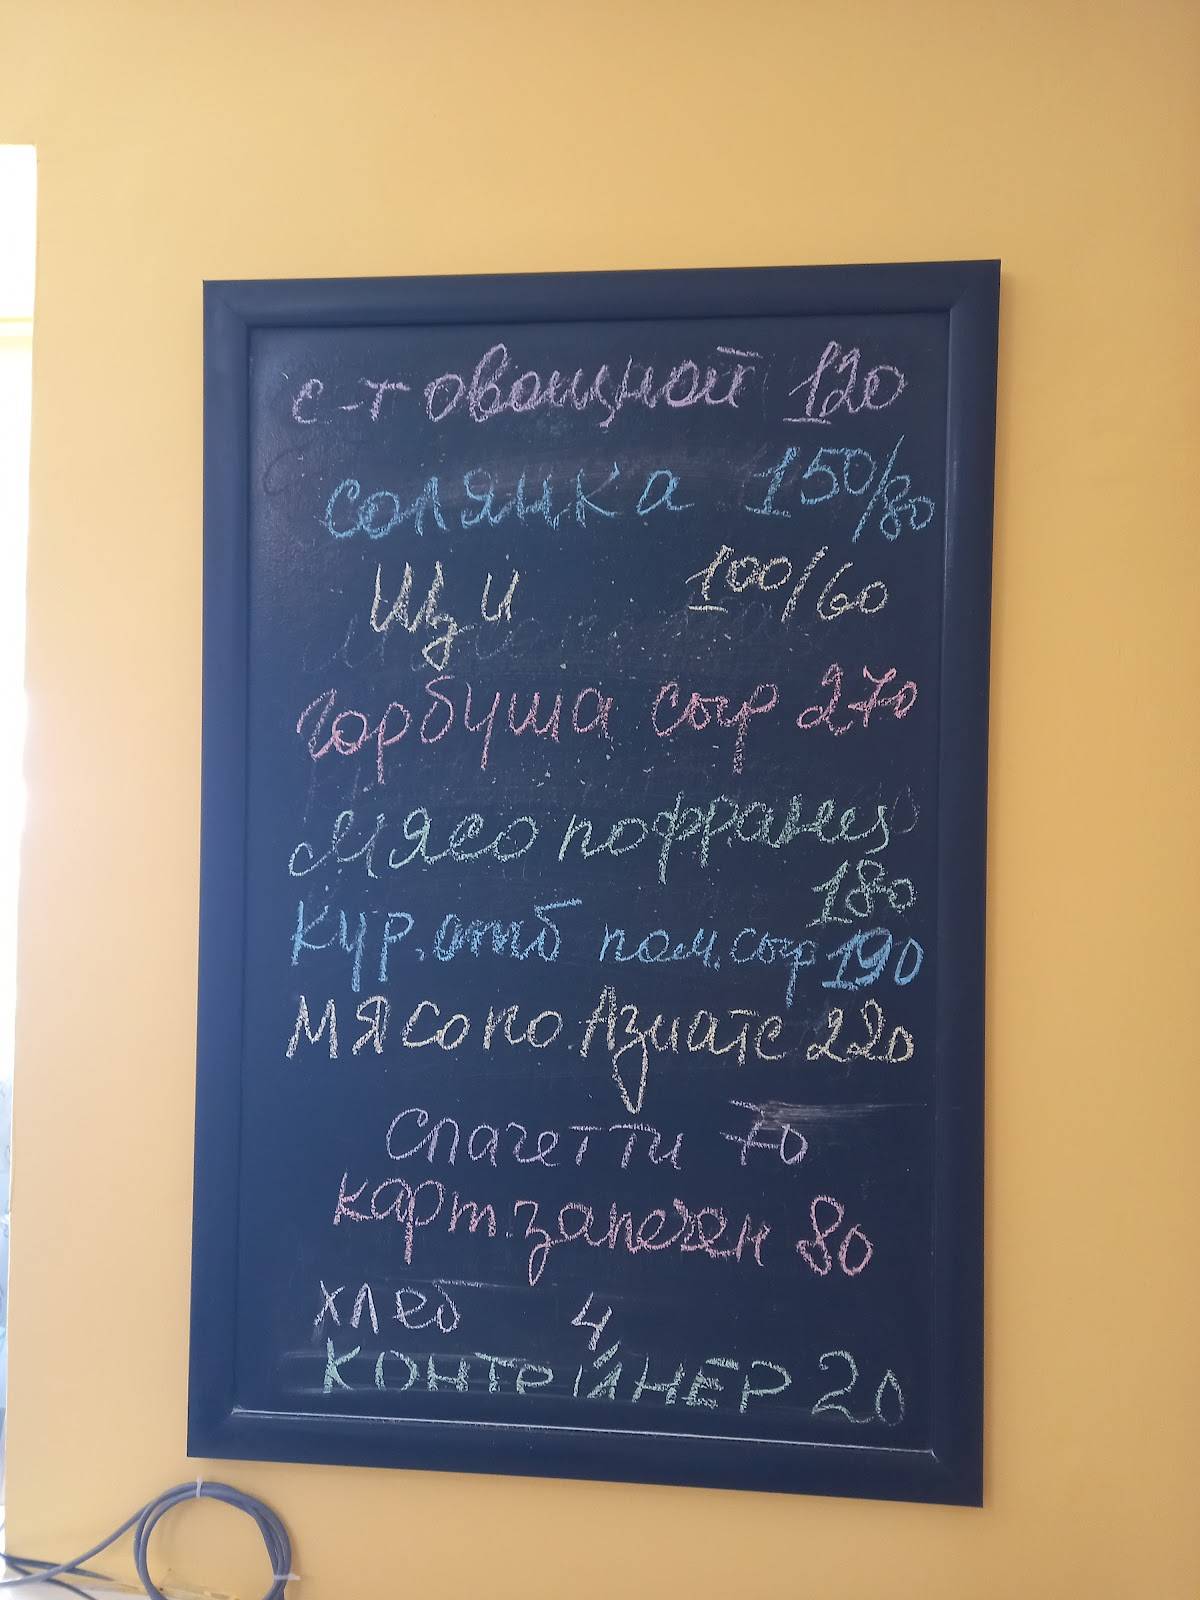 с-т овощной 120
солянка 150/80
Щи 100/60
горбуша сыр 270
Мясо по франц
180
кур. отб пом. сыр 190
Мясо по Азиатс 220
Спагетти 70
карт. запечен 80
хлеб 4
контейнер 20